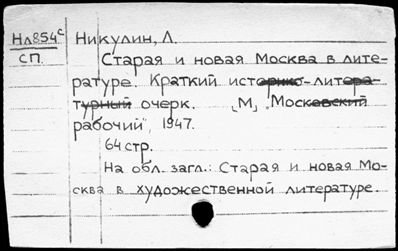 Нл854с Никулин, Л.
СП. Старая и новая Москва в лите-
ратуре. Краткий историко-литера-
турный очерк. [М], "Московский
рабочий", 1947.
64 стр.
На обл. загл.: Старая и новая Мо-
сква в художественной литературе.